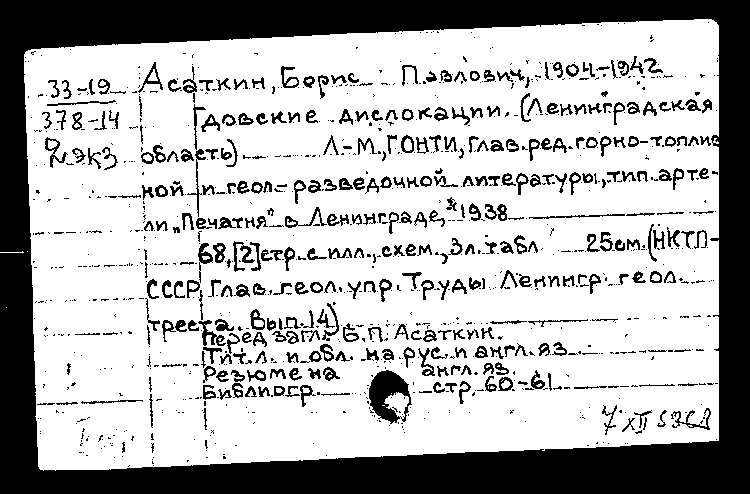 33-19 Асаткин, Борис Павлович, 1904-1942
378-14 Гдовские дислокации. (Ленинградская
2 экз область) Л-М., ГОНТИ, Глав. ред. горно-топлив
ной и геол-разведочной литературы, тип. арте-
ли „Печатня" в Ленинграде, 1938
68, [2] стр. с илл., схем., 3 л. табл 25 см. (НКТП-
СССР, Глав. геол. упр. Труды Ленингр. геол.
треста. Вып. 14)
Перед загл. Б.П. Асаткин.
Тит. л. и обл. на рус. и англ. яз
Резюме на англ. яз.
Библиогр. стр. 60-61
7 XII